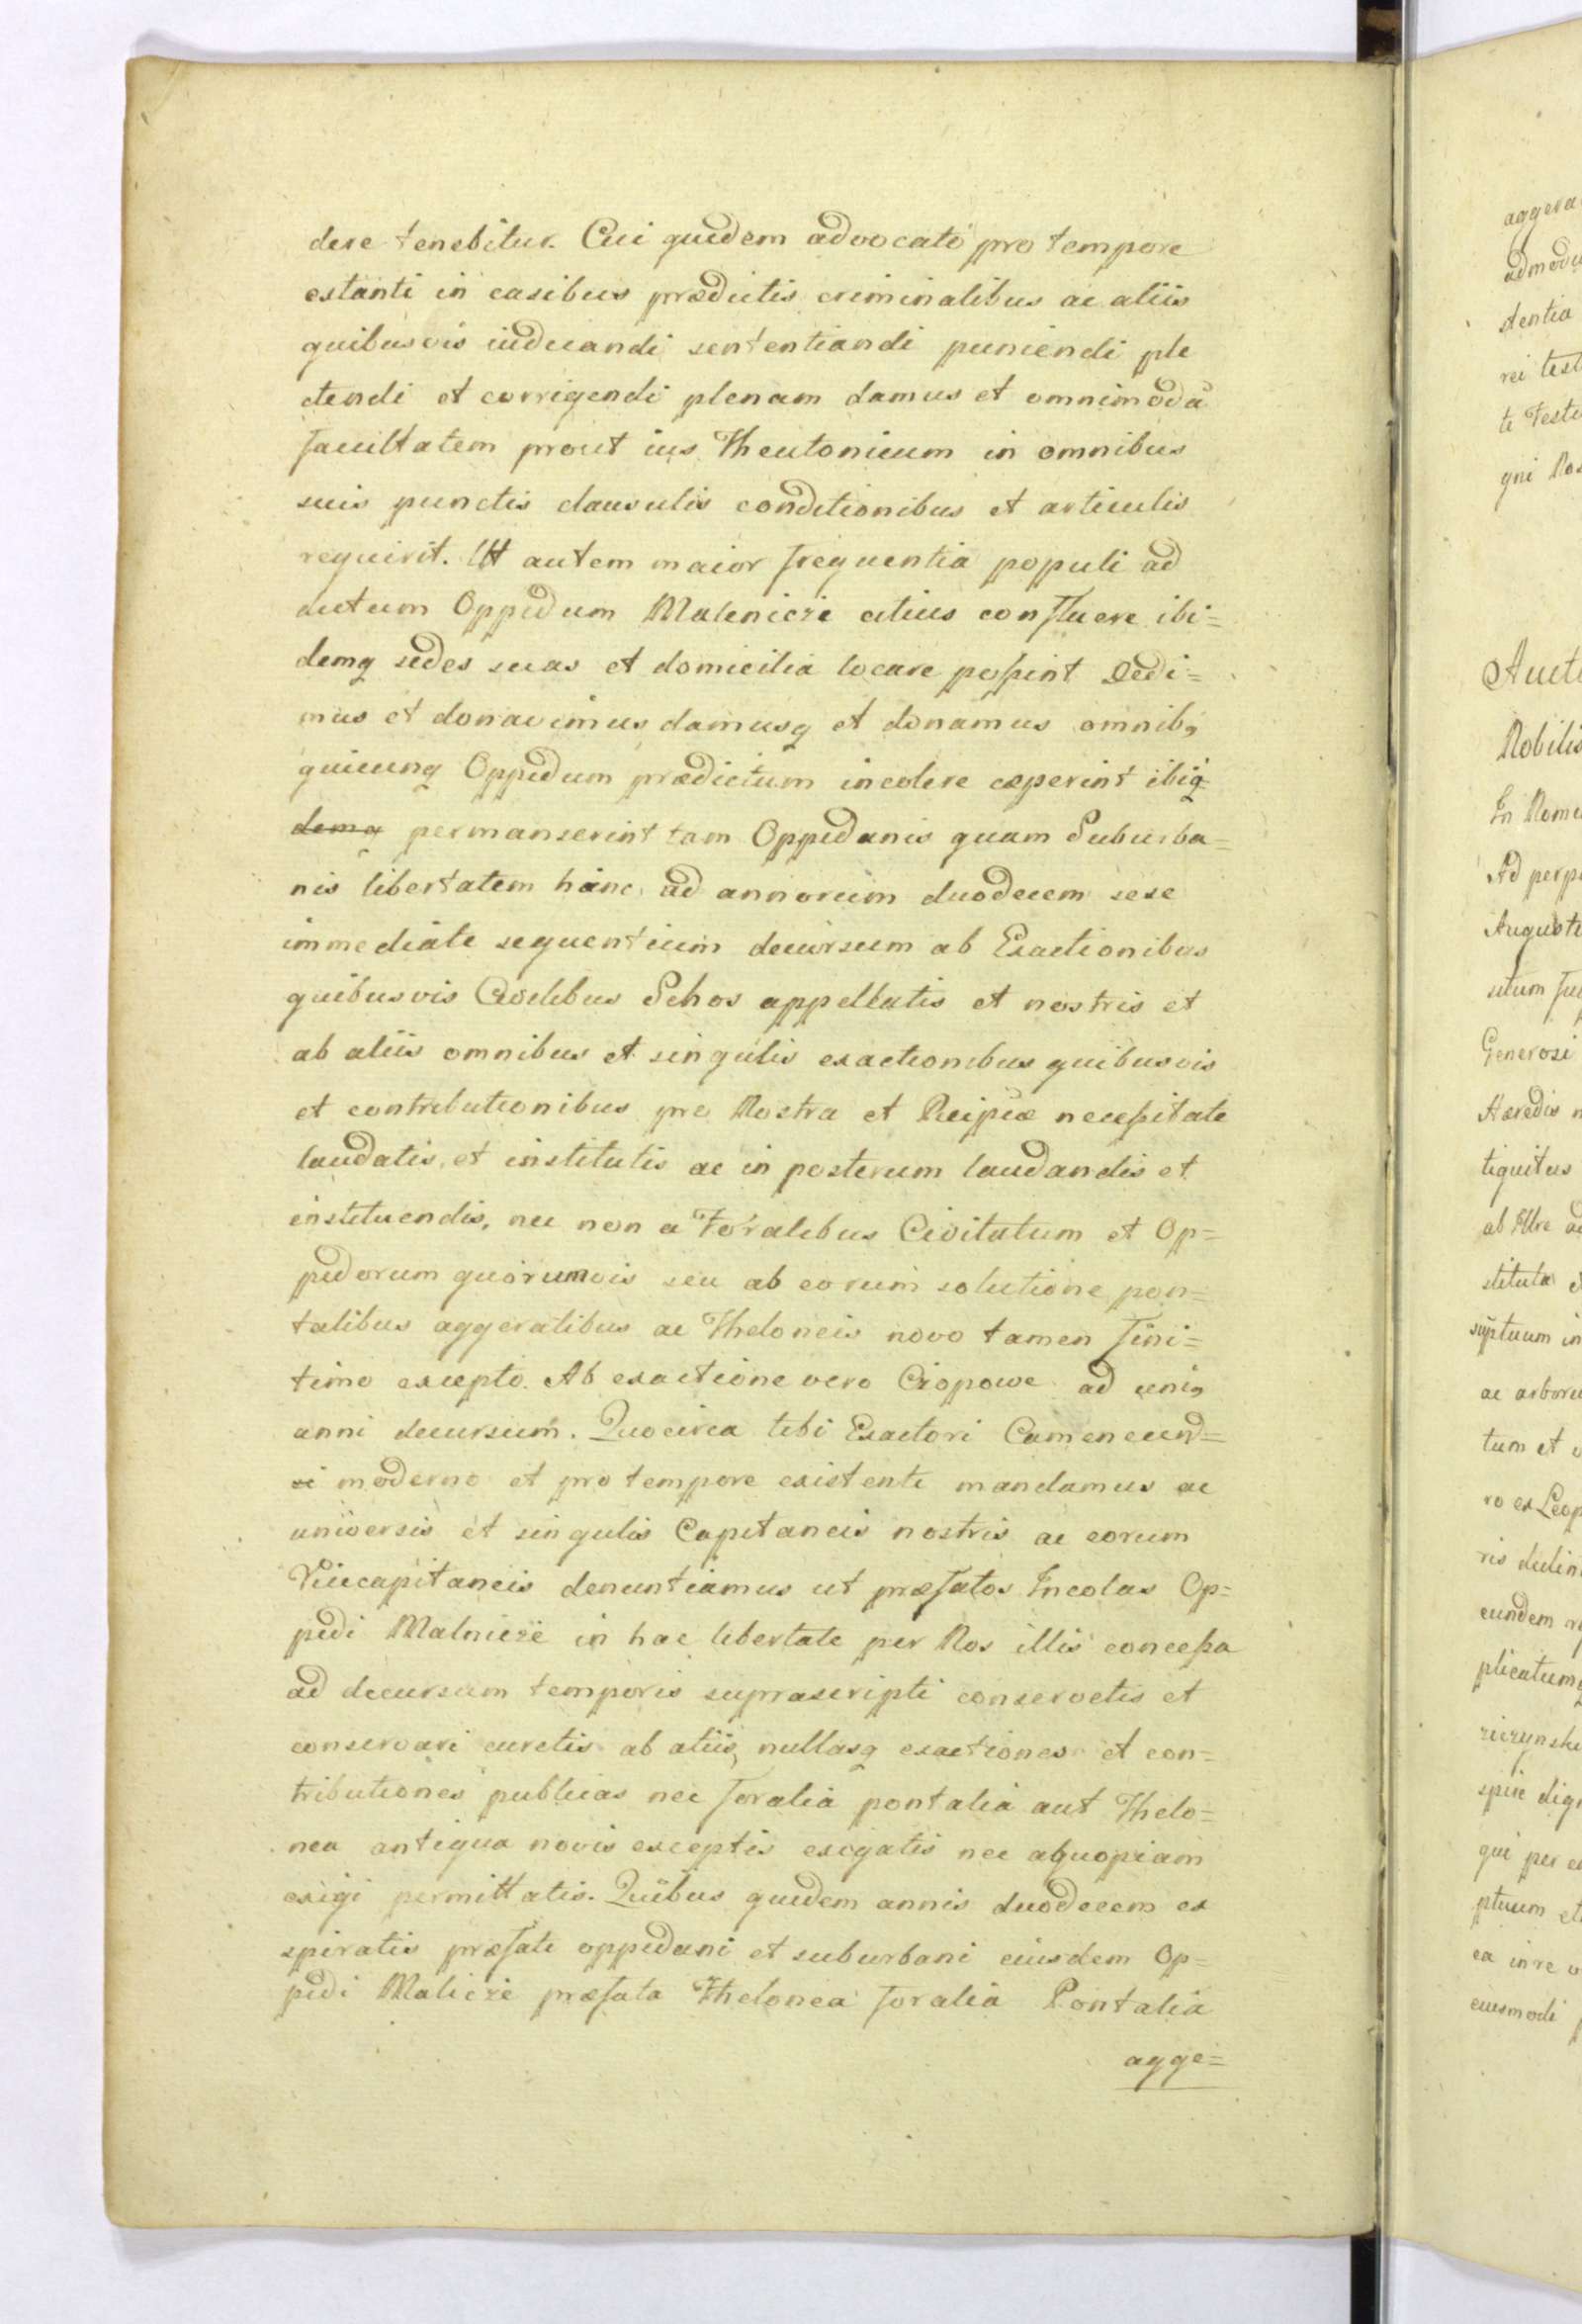 dere tenebitur. Cui quidem advocato pro tempore
extanti in casibus prædictis criminalibus ac aliis
quibusvis iudicandi sententiandi puniendi ple
ctendi et corrigendi plenam damus et omnimodā
facultatem prout ius Theutonicum in omnibus
suis punctis clausulis conditionibus et articulis
requirit. Ut autem maior frequentia populi ad
dictum Oppidum Maleniczе citius confluere ibi=
demq sedes suas et domicilia locare poßint Dedi=
mus et donavimus damusq et donamus omnibq
quicunq Oppidum prædictum incolere cæperint ibiq
demq permanserint tam Oppidanis quam Suburba=
nis libertatem hanc ad annorum duodecem sese
immediate sequentium decursum ab Exactionibus
quibusvis Civilibus Schos appellatis et nostris et
ab aliis omnibus et singulis exactionibus quibusvis
et contributionibus pro Nostra et Reipcæ neceßitate
laudatis, et institutis ac in posterum laudandis et
instituendis, nec non a Foralibus Civitatum et Op=
pidorum quorumvis seu ab eorum solutione pon=
talibus aggeralibus ac Theloneis novo tamen fini=
timo excepto. Ab exactione vero Czopowe ad uniq
anni decursum. Quocirca tibi Exactori Camenecend=
si moderno et pro tempore existenti mandamus ac
universis et singulis Capitaneis nostris ac eorum
Vicecapitaneis denuntiamus ut præfatos Incolas Op=
pidi Malnicze in hac libertate per Nos illis conceßa
ad decursum temporis suprascripti conservetis et
conservari curetis ab aliis, nullasq exactiones et con=
tributiones publicas nec foralia pontalia aut Thelo=
nea antiqua novis exceptis exigatis nec aquopiam
exigi permittatis. Quibus quidem annis duodecem ex
spiratis præfati oppidani et suburbani eiusdem Op=
pidi Malicze præfata Thelonea foralia Pontalia
agge=
aggera
admodu
dentia
rei test
te Festo
gni Nos
Aucti
Nobilis
In Nomi
Ad perpe
Augusti
utum
Generosi
Hæredis n
tiquitus
ab Illre ac
stituta
suptuum in
ac arboru
tum et
ro ex Leop
ris
eundem
plicatumq
spiie dig
qui per
ptuum et
ea in re
eiusmodi